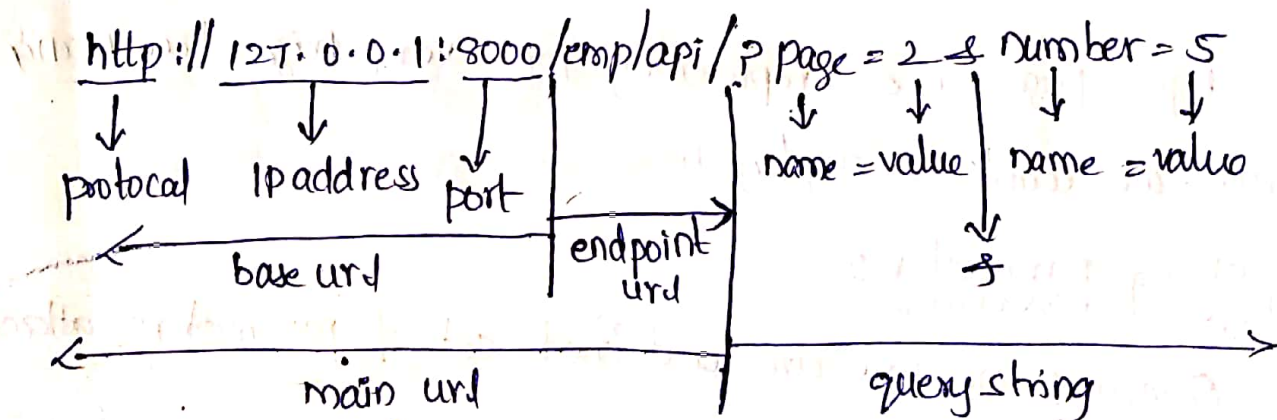 http://127.0.0.1:8000/emp/api/?page=2 & number=5
protocal IPaddress port name = value name = value
&
base url endpoint
url
main url query string